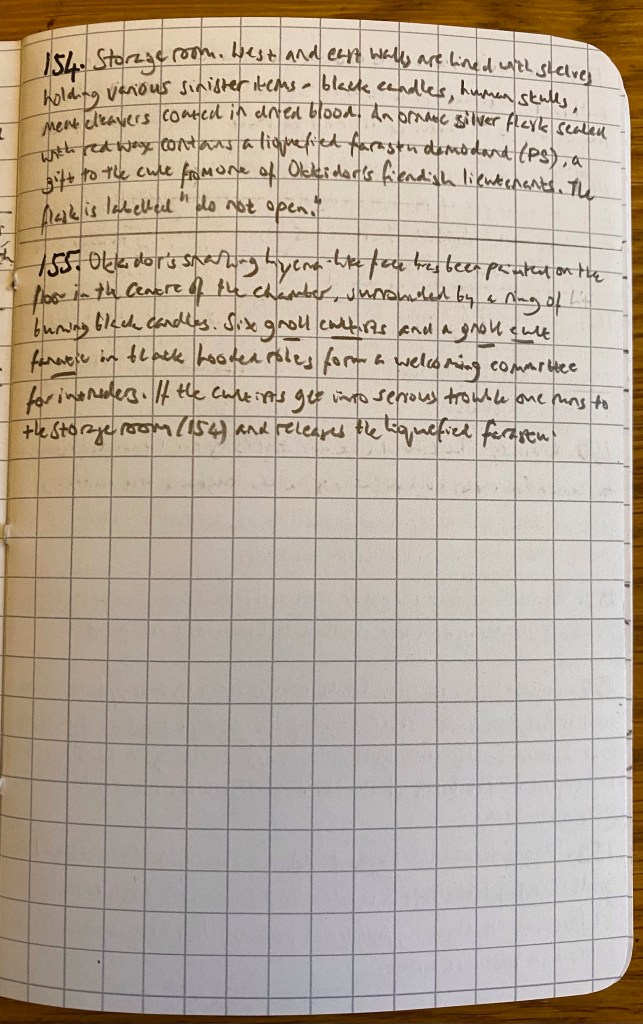 154. Storage room. West and east walls are lined with shelves
holding various sinister items - black candles, human skulls,
meat cleavers coated in dried blood. An ornate silver flask sealed
with red wax contains a liquefied farastu demodand (P5), a
gift to the cult from one of Okkidor's fiendish lieutenants. The
flask is labelled "do not open."
155. Okkidor's snarling hyena-like face has been painted on the
floor in the centre of the chamber, surrounded by a ring of
burning black candles. Six gnoll cultists and a gnoll cult
fanatic in black hooded robes form a welcoming committee
for intruders. If the cultists get into serious trouble one runs to
the storage room (154) and releases the liquefied farastu.